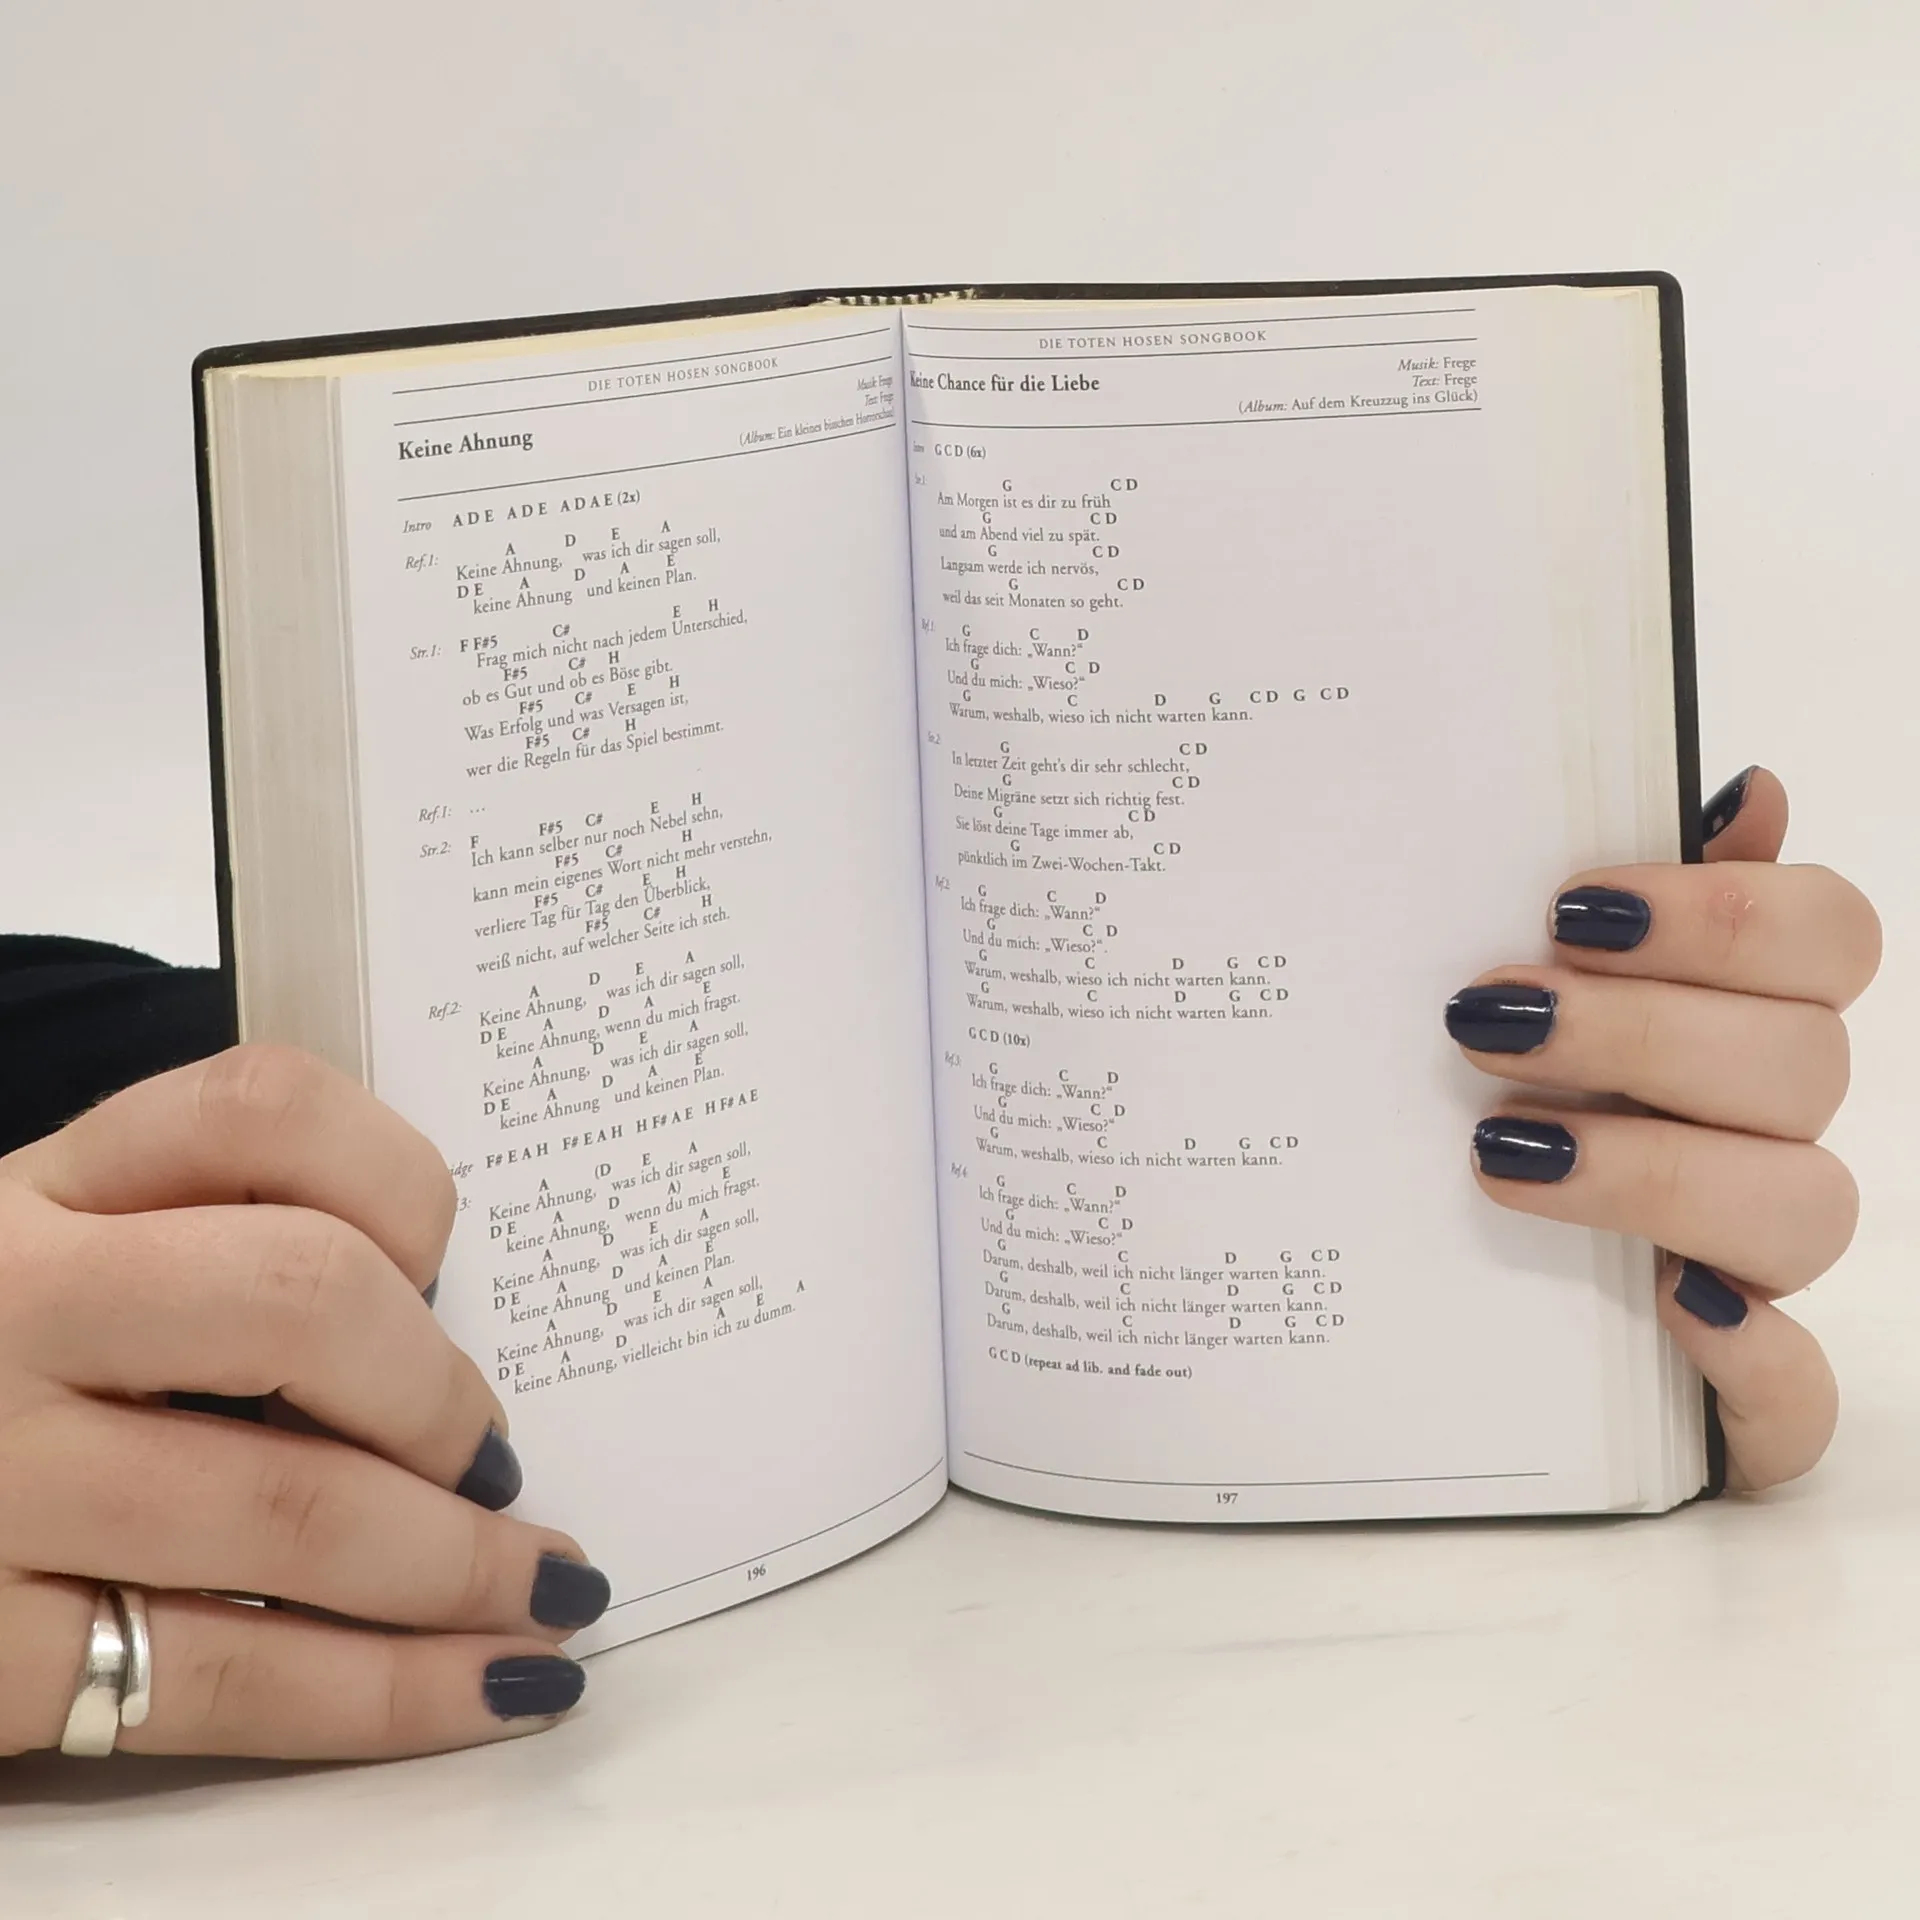 DIE TOTEN HOSEN SONGBOOK
Musik: Frege
Text: Frege
Keine Ahnung
(Album: Ein kleines bisschen Horrorschau)
Intro A D E A D E A D A E (2x)
A D E A
Ref.1: Keine Ahnung, was ich dir sagen soll,
D E A D A E
keine Ahnung und keinen Plan.
F F#5 C# E H
Str.1: Frag mich nicht nach jedem Unterschied,
F#5 C# H
ob es Gut und ob es Böse gibt.
F#5 C# E H
Was Erfolg und was Versagen ist,
F#5 C# H
wer die Regeln für das Spiel bestimmt.
Ref.1: ...
F F#5 C# E H
Str.2: Ich kann selber nur noch Nebel sehn,
F#5 C# H
kann mein eigenes Wort nicht mehr verstehn,
F#5 C# E H
verliere Tag für Tag den Überblick,
F#5 C# H
weiß nicht, auf welcher Seite ich steh.
A D E A
Ref.2: Keine Ahnung, was ich dir sagen soll,
D E A D A E
keine Ahnung, wenn du mich fragst.
A D E A
Keine Ahnung, was ich dir sagen soll,
D E A D A E
keine Ahnung und keinen Plan.
idge F# E A H F# E A H H F# A E H F# A E
A (D E A
3: Keine Ahnung, was ich dir sagen soll,
D E A D A) E
keine Ahnung, wenn du mich fragst.
A D E A
Keine Ahnung, was ich dir sagen soll,
D E A D A E
keine Ahnung und keinen Plan.
A D E A
Keine Ahnung, was ich dir sagen soll,
D E A D A E A
keine Ahnung, vielleicht bin ich zu dumm.
196
DIE TOTEN HOSEN SONGBOOK
Musik: Frege
Keine Chance für die Liebe
Text: Frege
(Album: Auf dem Kreuzzug ins Glück)
Intro G C D (6x)
Str.1 G C D
Am Morgen ist es dir zu früh
G C D
und am Abend viel zu spät.
G C D
Langsam werde ich nervös,
G C D
weil das seit Monaten so geht.
Ref.1: G C D
Ich frage dich: „Wann?“
G C D
Und du mich: „Wieso?“
G C D G C D G C D
Warum, weshalb, wieso ich nicht warten kann.
Str.2 G C D
In letzter Zeit geht's dir sehr schlecht,
G C D
Deine Migräne setzt sich richtig fest.
G C D
Sie löst deine Tage immer ab,
G C D
pünktlich im Zwei-Wochen-Takt.
Ref.2: G C D
Ich frage dich: „Wann?“
G C D
Und du mich: „Wieso?“.
G C D G C D
Warum, weshalb, wieso ich nicht warten kann.
G C D G C D
Warum, weshalb, wieso ich nicht warten kann.
G C D (10x)
Ref.3: G C D
Ich frage dich: „Wann?“
G C D
Und du mich: „Wieso?“
G C D G C D
Warum, weshalb, wieso ich nicht warten kann.
Ref.4 G C D
Ich frage dich: „Wann?“
G C D
Und du mich: „Wieso?“
G C D G C D
Darum, deshalb, weil ich nicht länger warten kann.
G C D G C D
Darum, deshalb, weil ich nicht länger warten kann.
G C D G C D
Darum, deshalb, weil ich nicht länger warten kann.
G C D (repeat ad lib. and fade out)
197